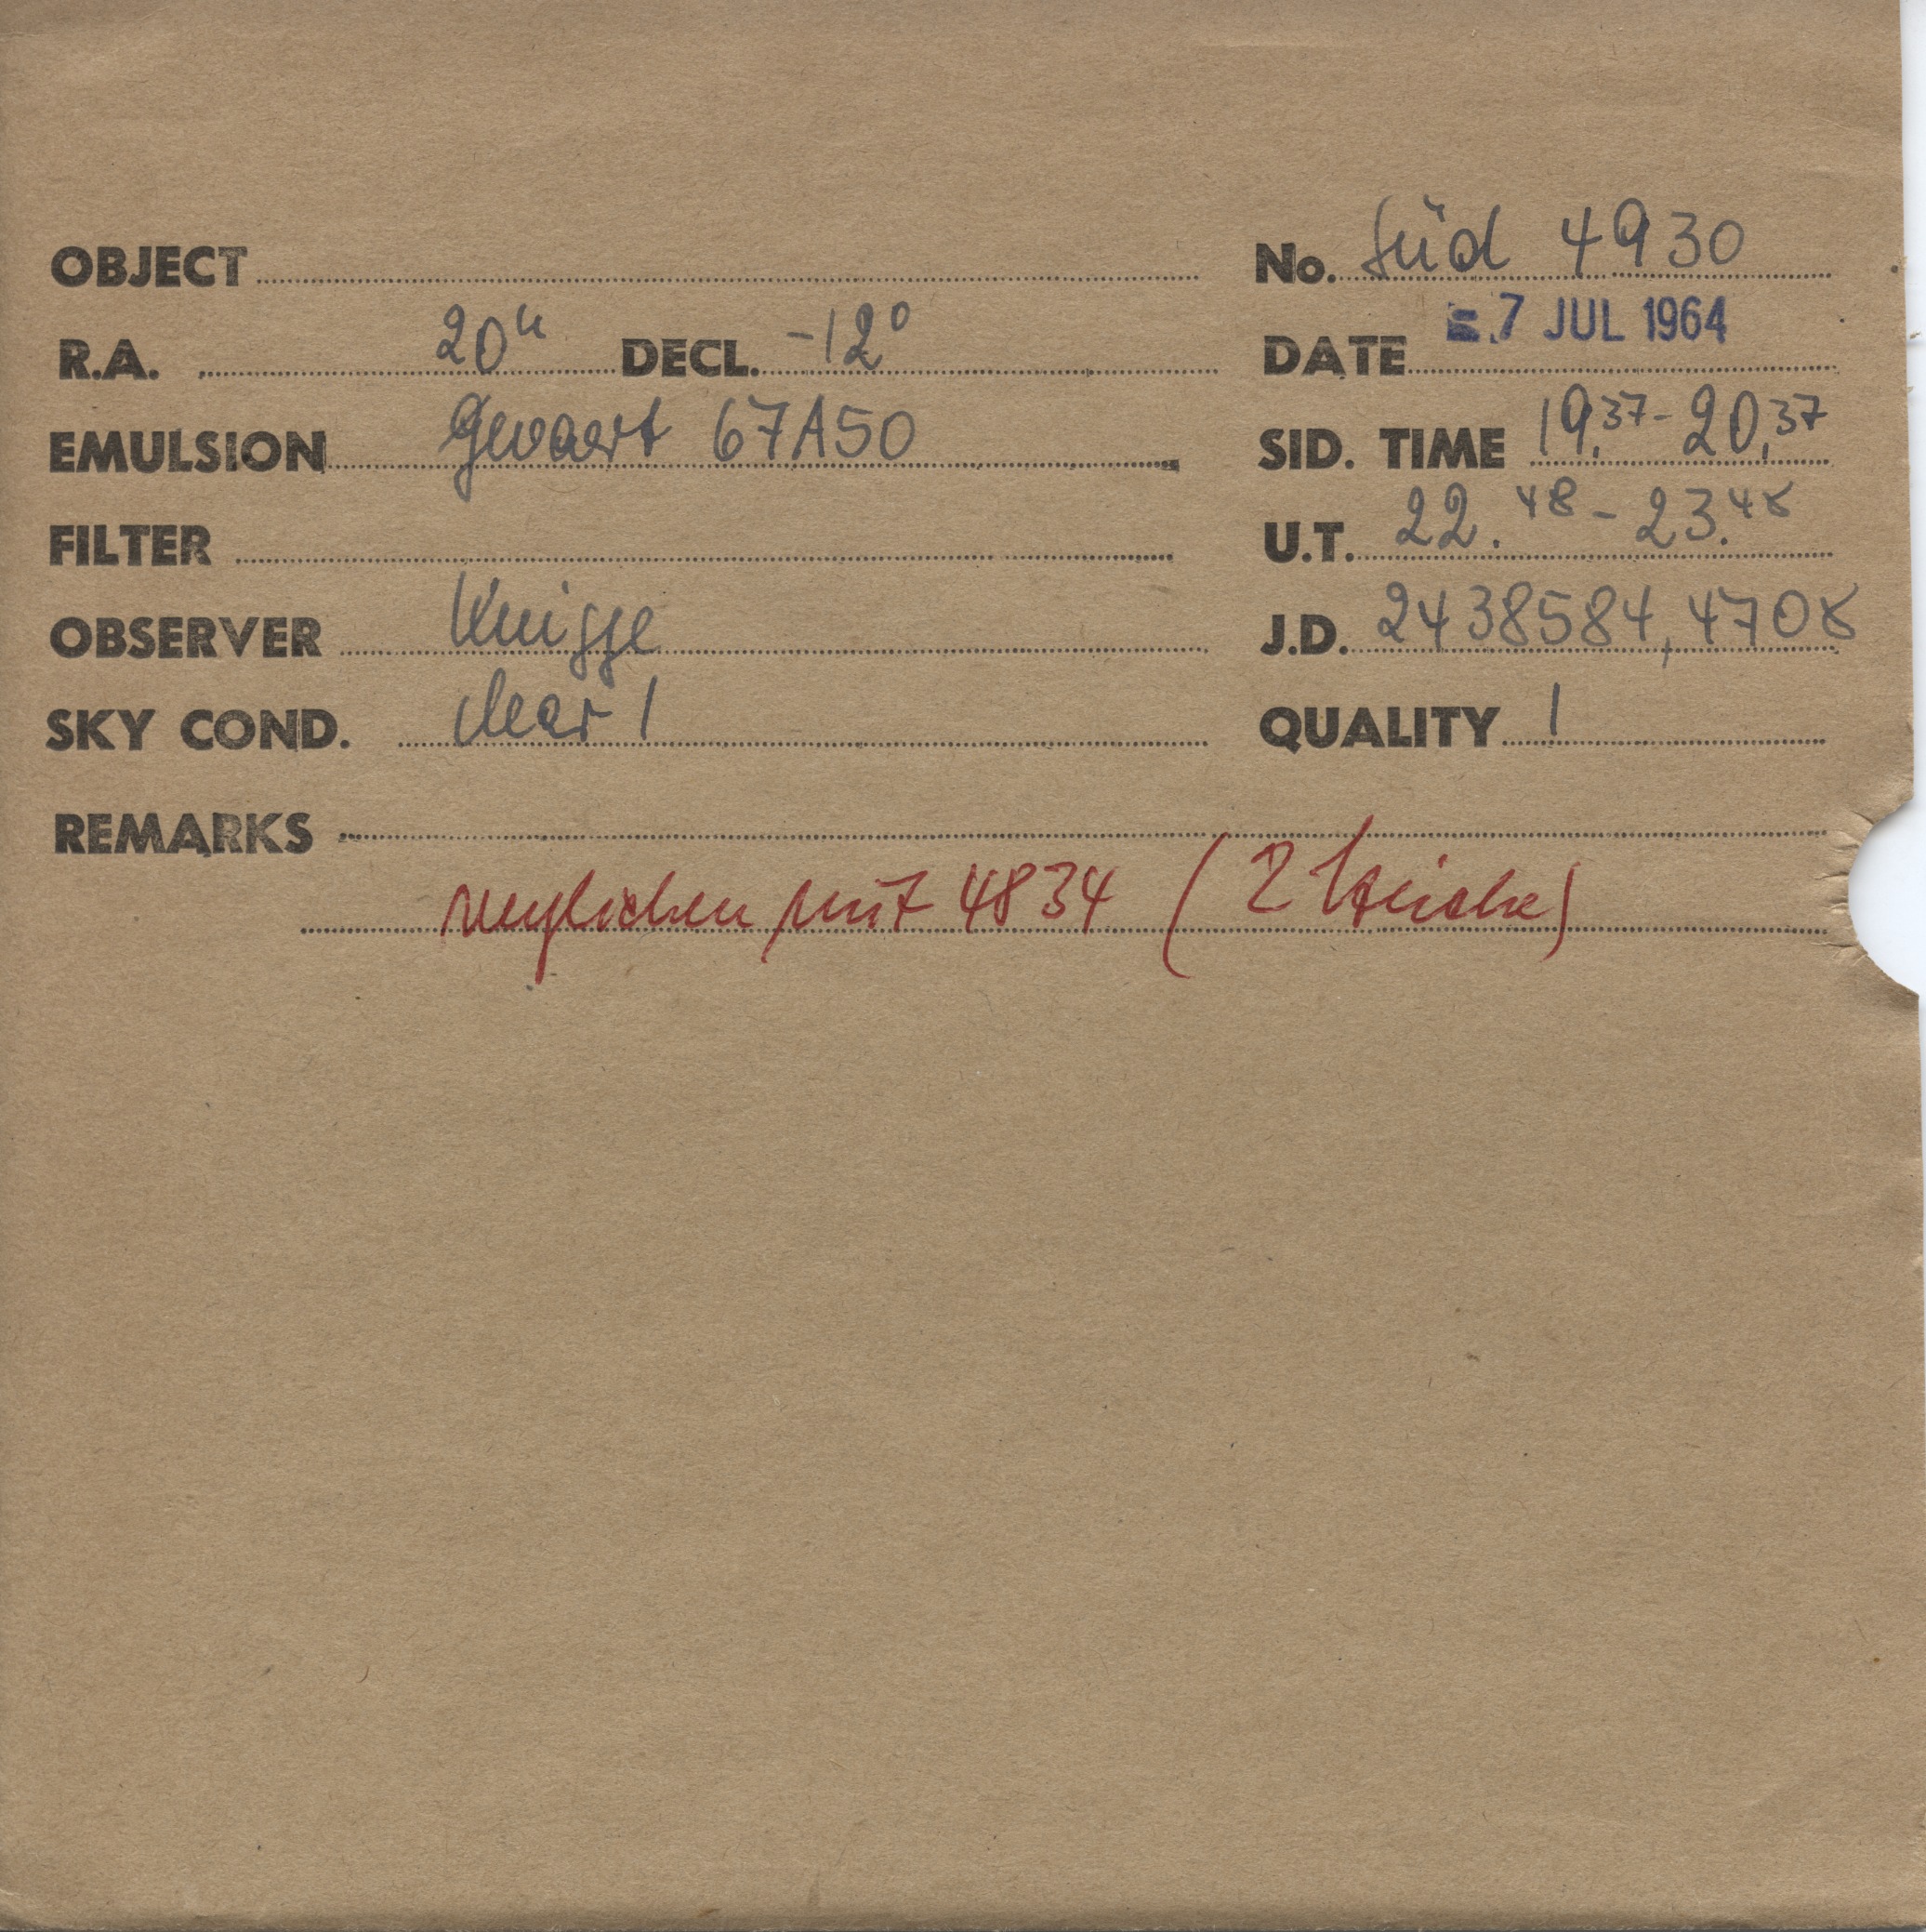 OBJECT No. Süd 4930
R.A. 20h DECL. -12° DATE 7 JUL 1964
EMULSION Gevaert 67A50 SID. TIME 19.37 - 20.37
FILTER U.T. 22.48 - 23.48
OBSERVER Knigge J.D. 2438584,4708
SKY COND. clear 1 QUALITY 1
REMARKS
verglichen mit 4834 (2 Striche)